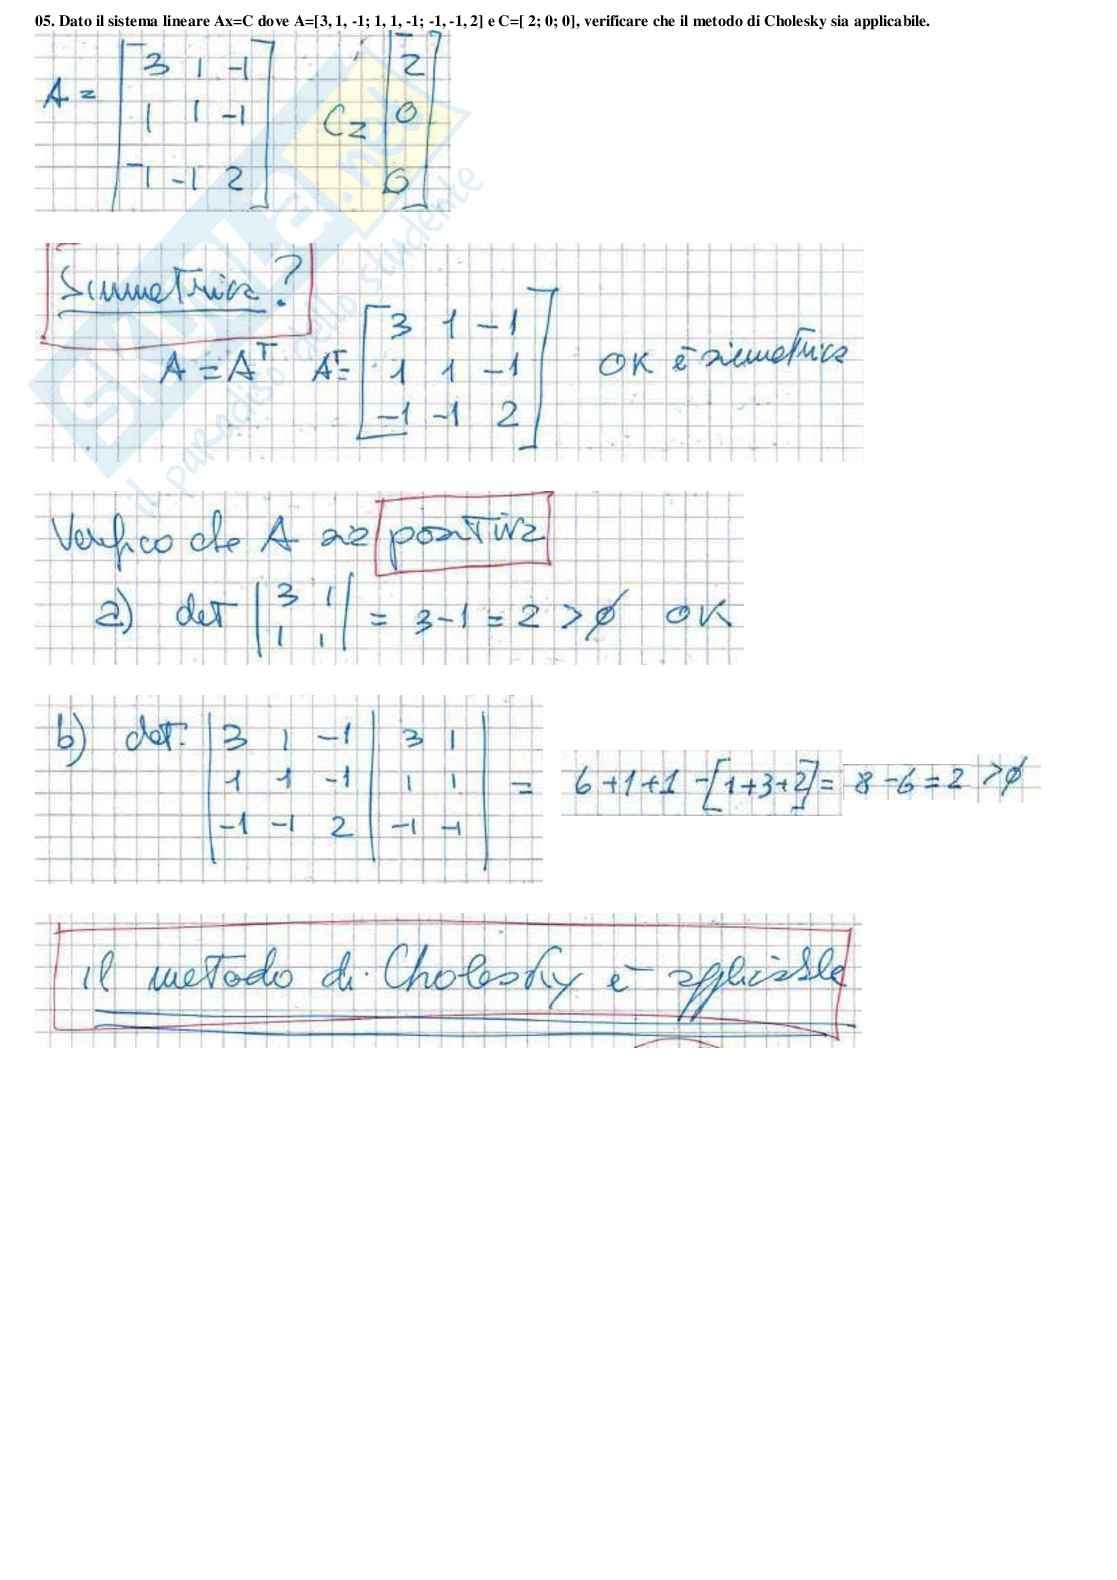 05. Dato il sistema lineare Ax=C dove A=[3, 1, -1; 1, 1, -1; -1, -1, 2] e C=[ 2; 0; 0], verificare che il metodo di Cholesky sia applicabile.
3 1 -1 2
A = 1 1 -1 C= 0
-1 -1 2 0
Simmetrica?
3 1 -1
A = Aᵀ Aᵀ= 1 1 -1 OK è simmetrica
-1 -1 2
Verifico che A sia positiva
a) det | 3 1 | = 3-1 = 2 > 0 OK
1 1
b) det. | 3 1 -1 | 3 1 |
1 1 -1 | 1 1 | = 6+1+1 -[1+3+2] = 8-6=2 >0
-1 -1 2 | -1 -1
il metodo di Cholesky è applicabile
SKUOLA.net
il paradiso dello studente